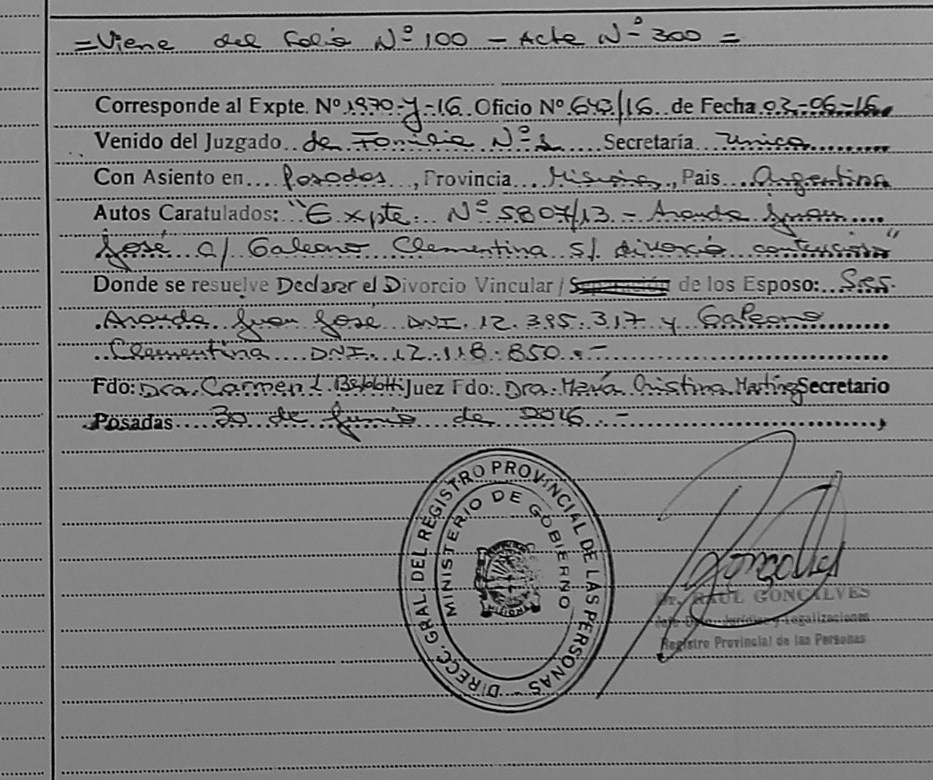 =Viene del Folio Nº 100 - Acta Nº 300 =
Corresponde al Expte. Nº 1970-y-16 Oficio Nº 643/16 de Fecha 03-06-16
Venido del Juzgado de Familia Nº 1 Secretaría Unica
Con Asiento en Posadas, Provincia Misiones, Pais Argentina
Autos Caratulados: "Expte. Nº 5807/13.- Aranda Juan
José c/ Galeano Clementina s/ divorcio contencioso"
Donde se resuelve Declarar el Divorcio Vincular / Separación de los Esposo: Sres.
Aranda Juan José DNI. 12.395.317 y Galeano
Clementina DNI. 12.118.850.-
Fdo: Dra. Carmen L. Juez Fdo: Dra. María Cristina Martínez Secretario
Posadas 30 de Junio de 2016.-
DIRECC. GRAL. DEL REGISTRO PROVINCIAL DE LAS PERSONAS
MINISTERIO DE GOBIERNO
Dr. RAUL GONCALVES
Jefe Dpto. Jurídico y Legalizaciones
Registro Provincial de las Personas